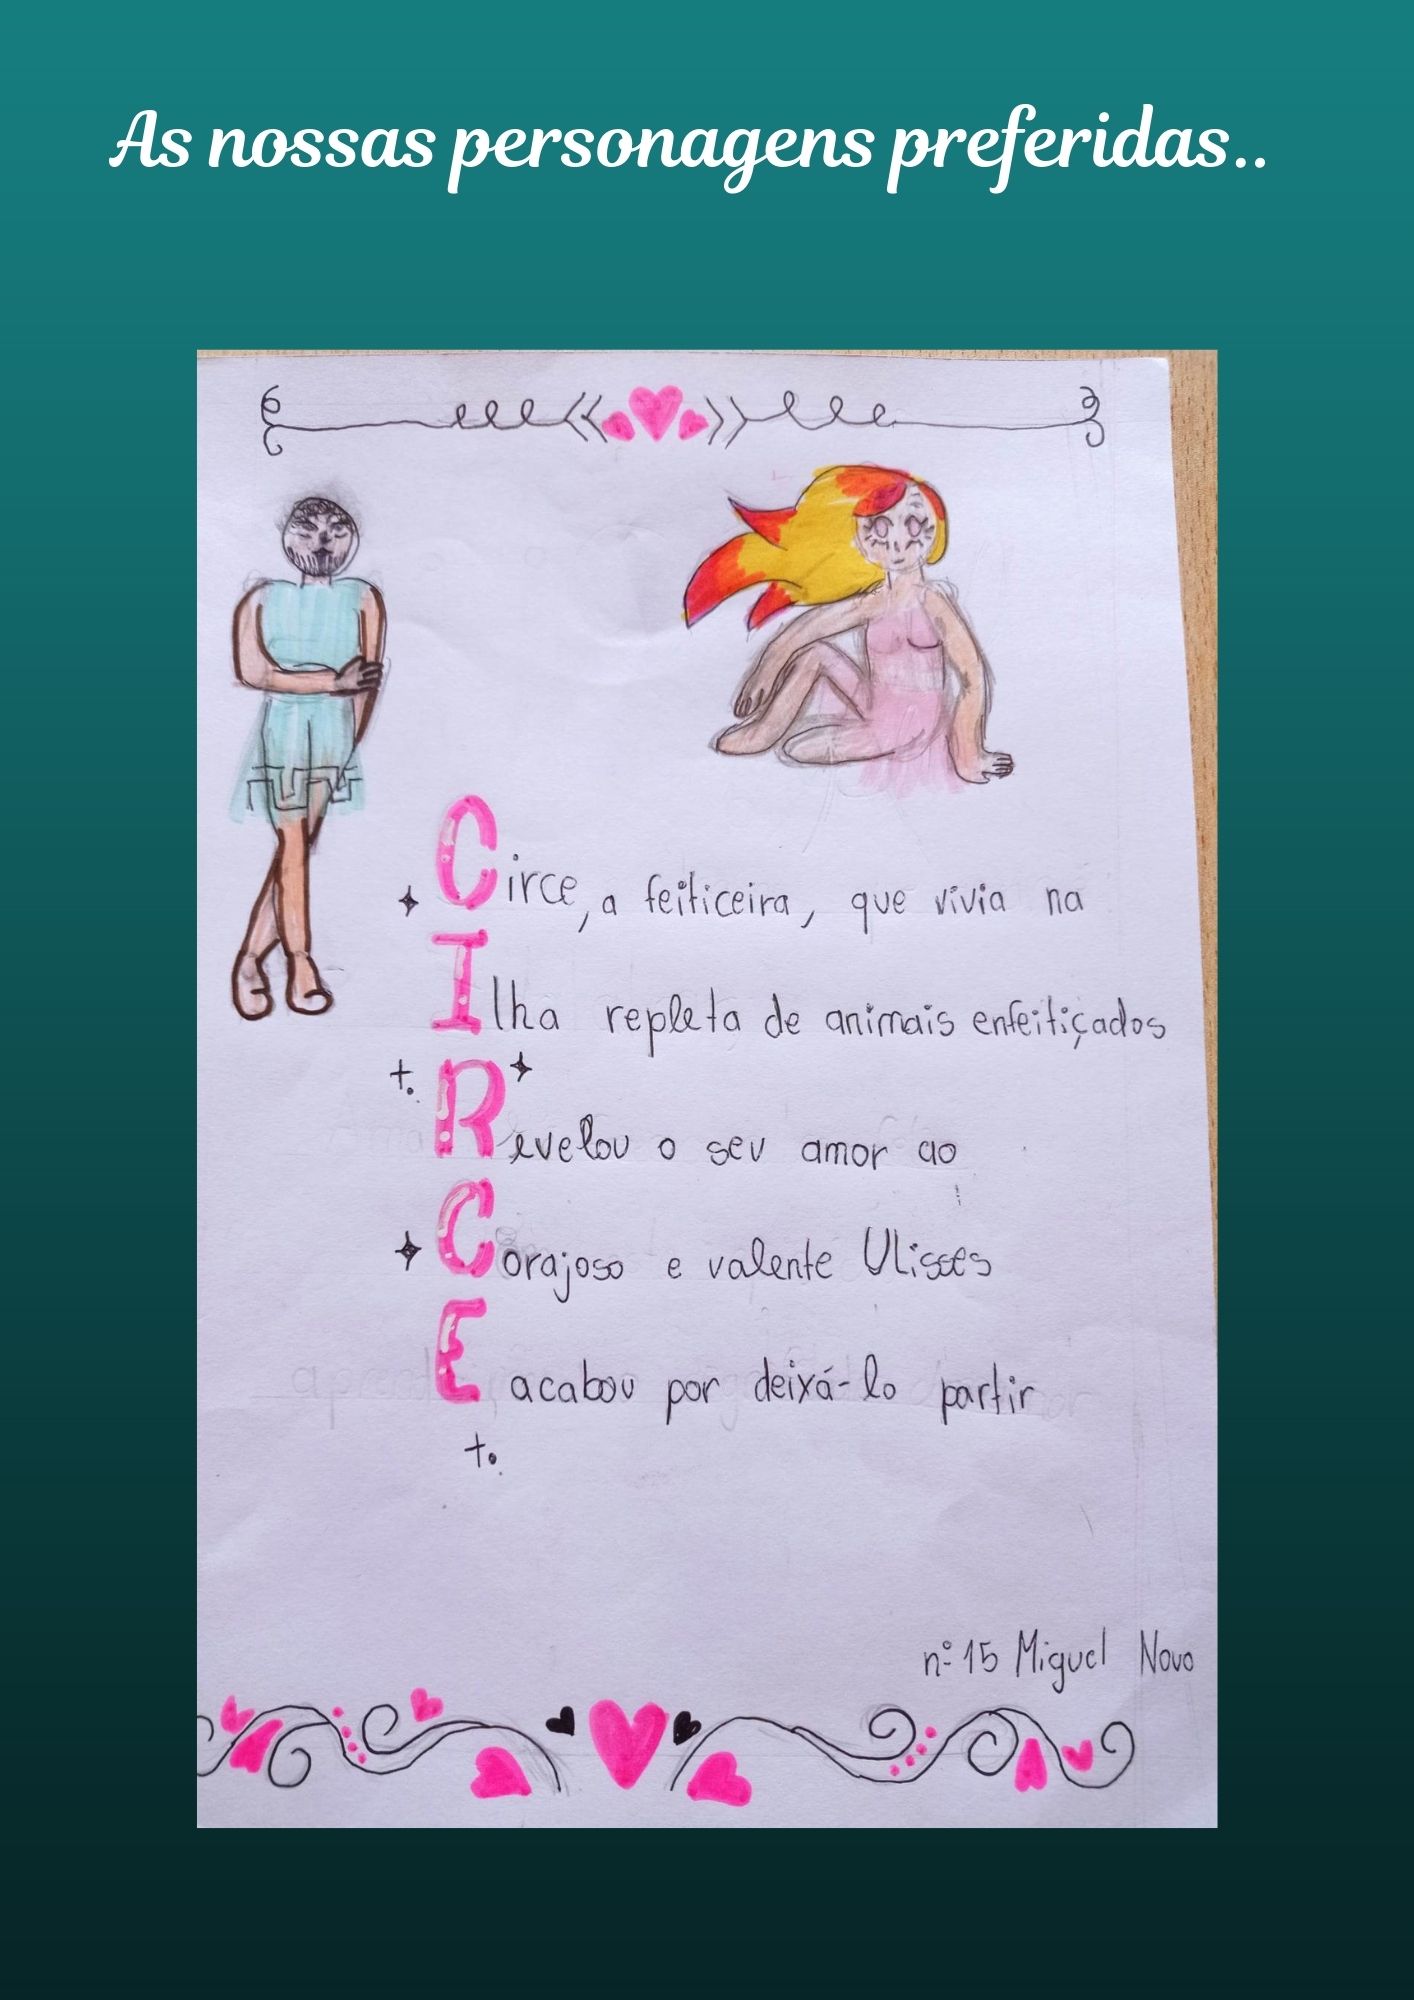 As nossas personagens preferidas..
Circe, a feiticeira, que vivia na
Ilha repleta de animais enfeitiçados
Revelou o seu amor ao
Corajoso e valente Ulisses
E acabou por deixá-lo partir
nº 15 Miguel Novo